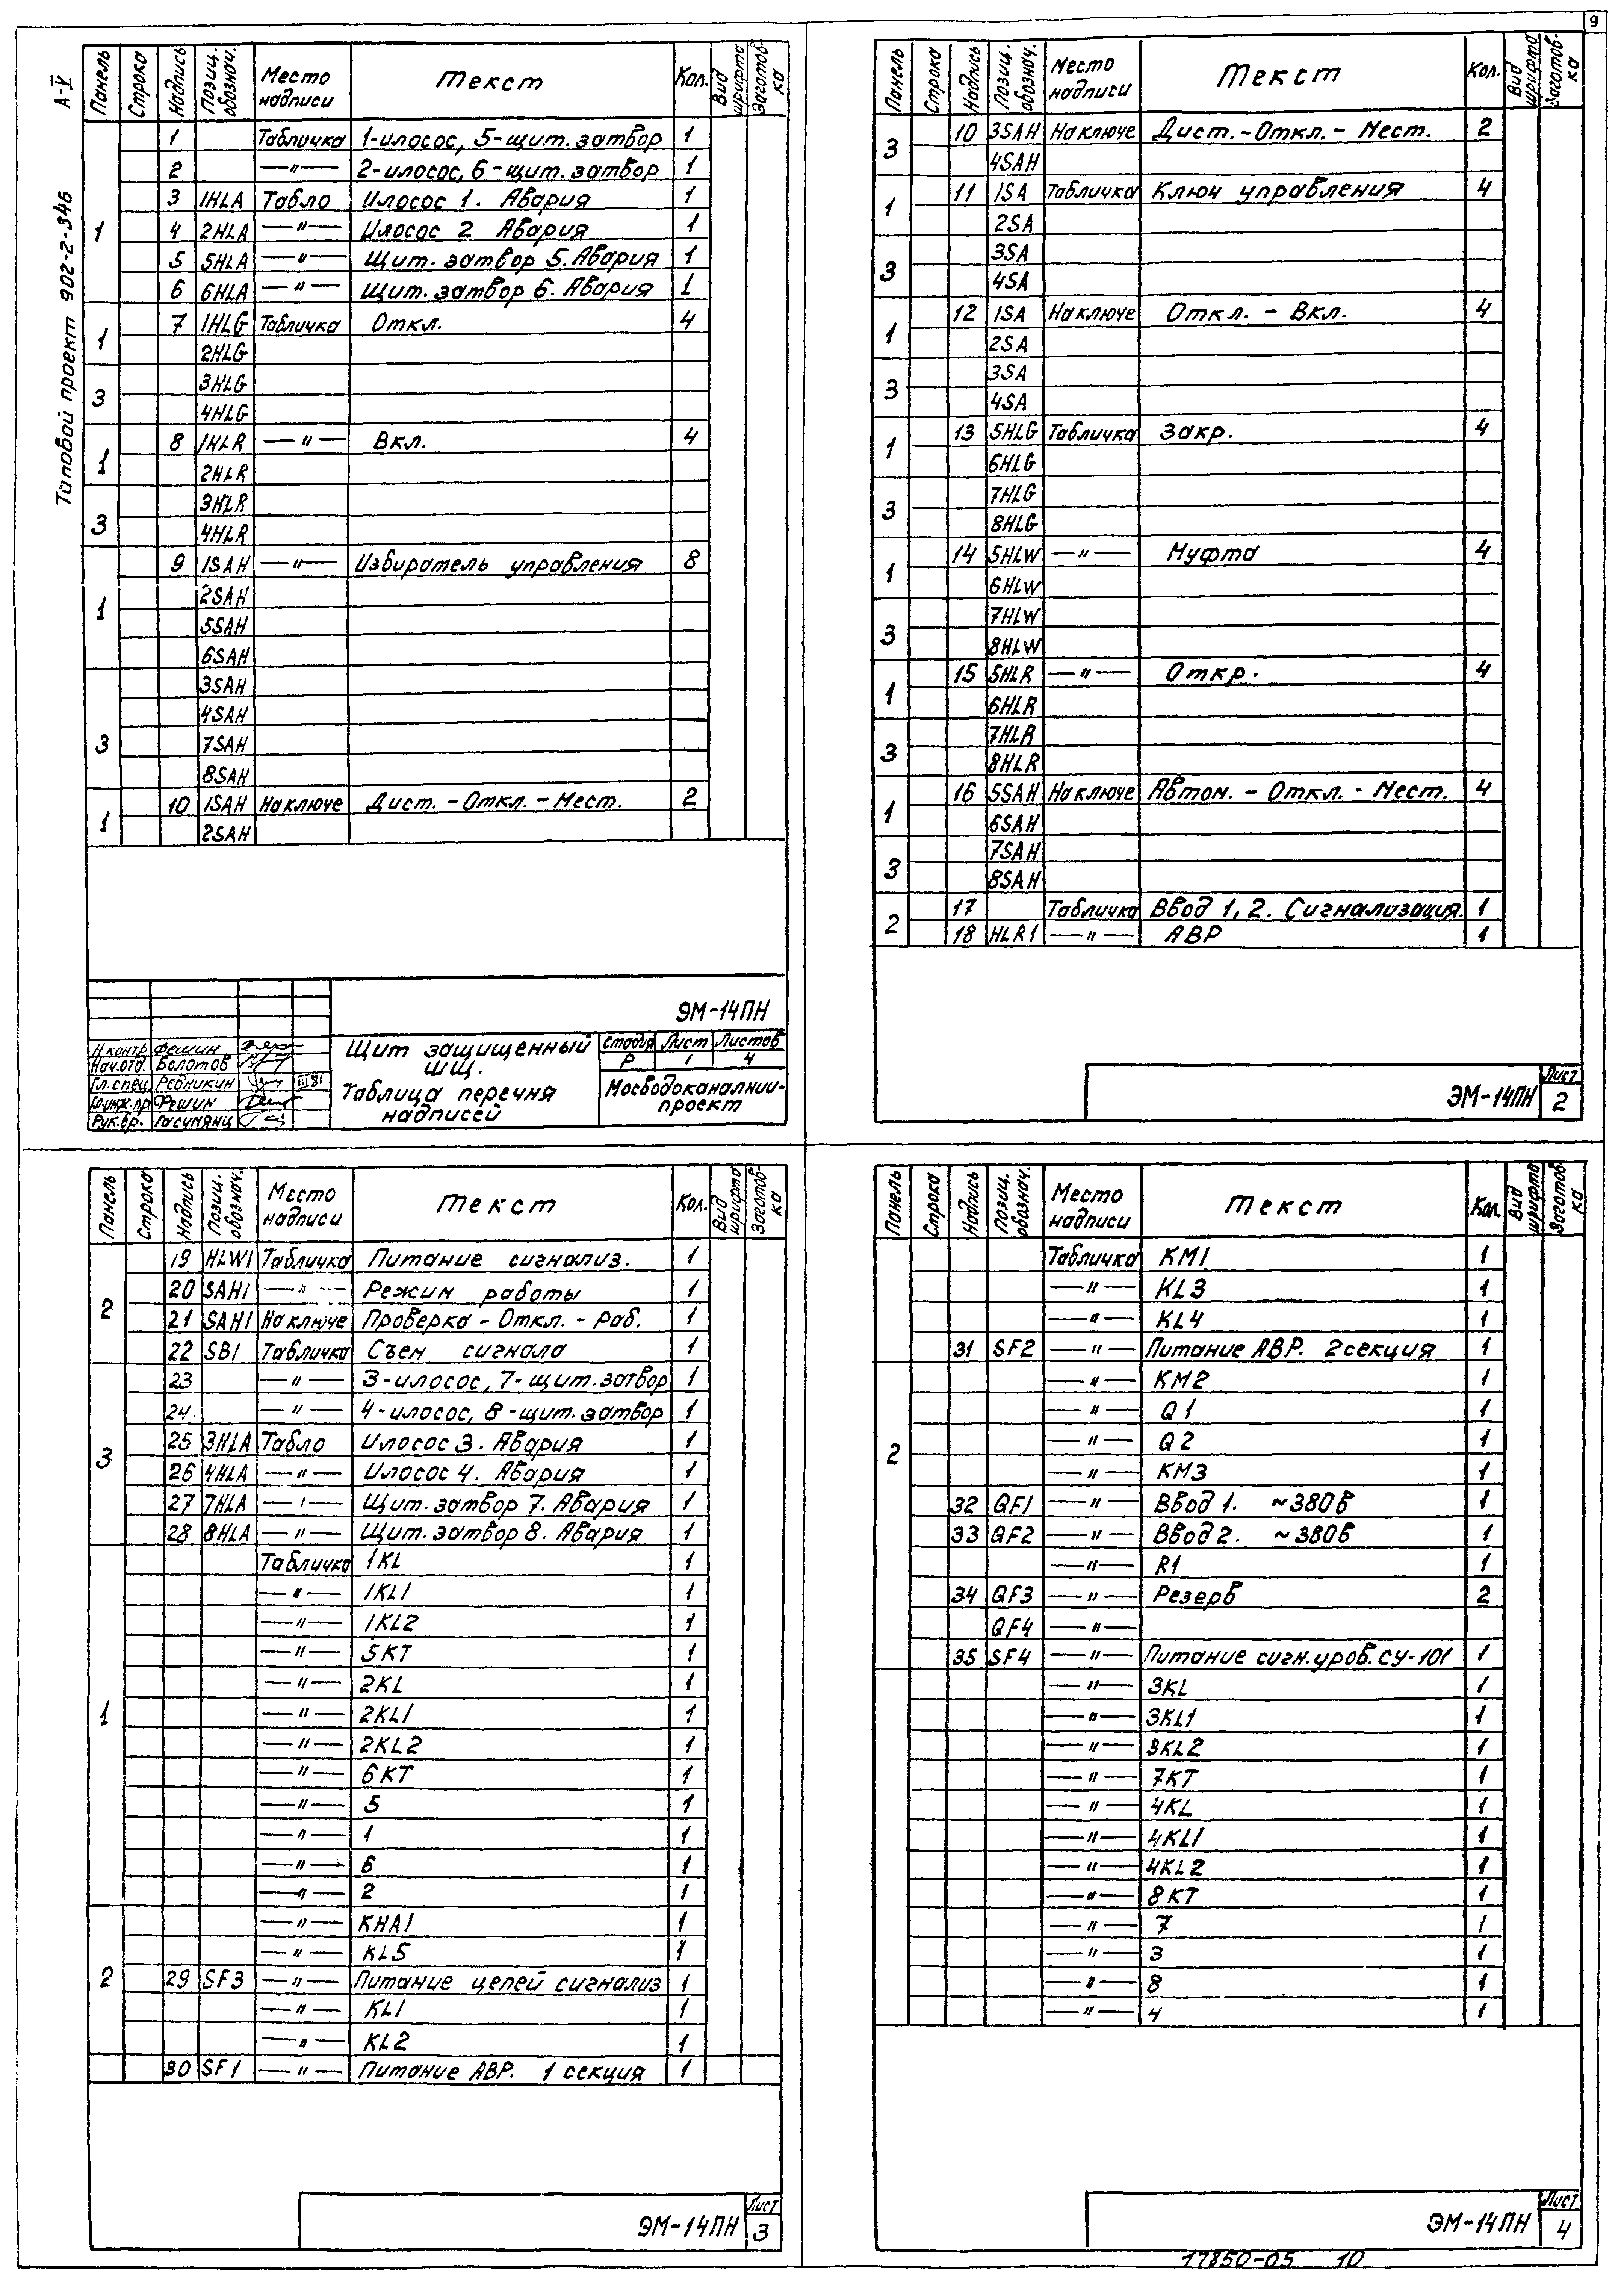 9
А-V
Типовой проект 902-2-346
Панель Строка Надпись Позиц. обознач. Место надписи Текст Кол. Вид шрифта Заготовка
1 Табличка 1-илосос, 5-щит. затвор 1
2 —"— 2-илосос, 6-щит. затвор 1
1 3 1HLA Табло Илосос 1. Авария 1
4 2HLA —"— Илосос 2 Авария 1
5 5HLA —"— Щит. затвор 5. Авария 1
6 6HLA —"— Щит. затвор 6. Авария 1
1 7 1HLG Табличка Откл. 4
2HLG
3 3HLG
4HLG
1 8 1HLR —"— Вкл. 4
2HLR
3 3HLR
4HLR
1 9 1SAH —"— Избиратель управления 8
2SAH
5SAH
6SAH
3 3SAH
4SAH
7SAH
8SAH
1 10 1SAH На ключе Дист. - Откл. - Мест. 2
2SAH
ЭМ-14ПН
Н контр Фешин
Нач.отд. Болотов
Гл. спец. Редникин III 81
Фешин
Рук.бр. Гасумянц
Щит защищенный ШЩ.
Таблица перечня надписей
Стадия Лист Листов
Р 1 4
Мосводоканалнии-
проект
Панель Строка Надпись Позиц. обознач. Место надписи Текст Кол. Вид шрифта Заготовка
3 10 3SAH На ключе Дист. - Откл. - Мест. 2
4SAH
1 11 1SA Табличка Ключ управления 4
2SA
3 3SA
4SA
1 12 1SA На ключе Откл. - Вкл. 4
2SA
3 3SA
4SA
1 13 5HLG Табличка Закр. 4
6HLG
3 7HLG
8HLG
1 14 5HLW —"— Муфта 4
6HLW
3 7HLW
8HLW
1 15 5HLR —"— Откр. 4
6HLR
3 7HLR
8HLR
1 16 5SAH На ключе Автом. - Откл. - Мест. 4
6SAH
3 7SAH
8SAH
2 17 Табличка Ввод 1, 2. Сигнализация. 1
18 HLR1 —"— АВР 1
ЭМ-14ПН Лист 2
Панель Строка Надпись Позиц. обознач. Место надписи Текст Кол. Вид шрифта Заготовка
2 19 HLW1 Табличка Питание сигнализ. 1
20 SAH1 —"— Режим работы 1
21 SAH1 На ключе Проверка - Откл. - Раб. 1
22 SB1 Табличка Съем сигнала 1
3 23 —"— 3-илосос, 7-щит. затвор 1
24. —"— 4-илосос, 8-щит. затвор 1
25 3HLA Табло Илосос 3. Авария 1
26 4HLA —"— Илосос 4. Авария 1
27 7HLA —"— Щит. затвор 7. Авария 1
28 8HLA —"— Щит. затвор 8. Авария 1
1 Табличка 1KL 1
—"— 1KL1 1
—"— 1KL2 1
—"— 5KT 1
—"— 2KL 1
—"— 2KL1 1
—"— 2KL2 1
—"— 6KT 1
—"— 5 1
—"— 1 1
—"— 6 1
—"— 2 1
2 —"— KHA1 1
—"— KL5 1
29 SF3 —"— Питание цепей сигнализ 1
—"— KL1 1
—"— KL2 1
30 SF1 —"— Питание АВР. 1 секция 1
ЭМ-14ПН Лист 3
Панель Строка Надпись Позиц. обознач. Место надписи Текст Кол. Вид шрифта Заготовка
Табличка KM1 1
—"— KL3 1
—"— KL4 1
31 SF2 —"— Питание АВР. 2 секция 1
2 —"— KM2 1
—"— Q1 1
—"— Q2 1
—"— KM3 1
32 QF1 —"— Ввод 1. ~380в 1
33 QF2 —"— Ввод 2. ~380в 1
—"— R1 1
34 QF3 —"— Резерв 2
QF4 —"—
35 SF4 —"— Питание сигн. уров. СУ-101 1
—"— 3KL 1
—"— 3KL1 1
—"— 3KL2 1
—"— 7KT 1
—"— 4KL 1
—"— 4KL1 1
—"— 4KL2 1
—"— 8KT 1
—"— 7 1
—"— 3 1
—"— 8 1
—"— 4 1
ЭМ-14ПН Лист 4
17850-05 10